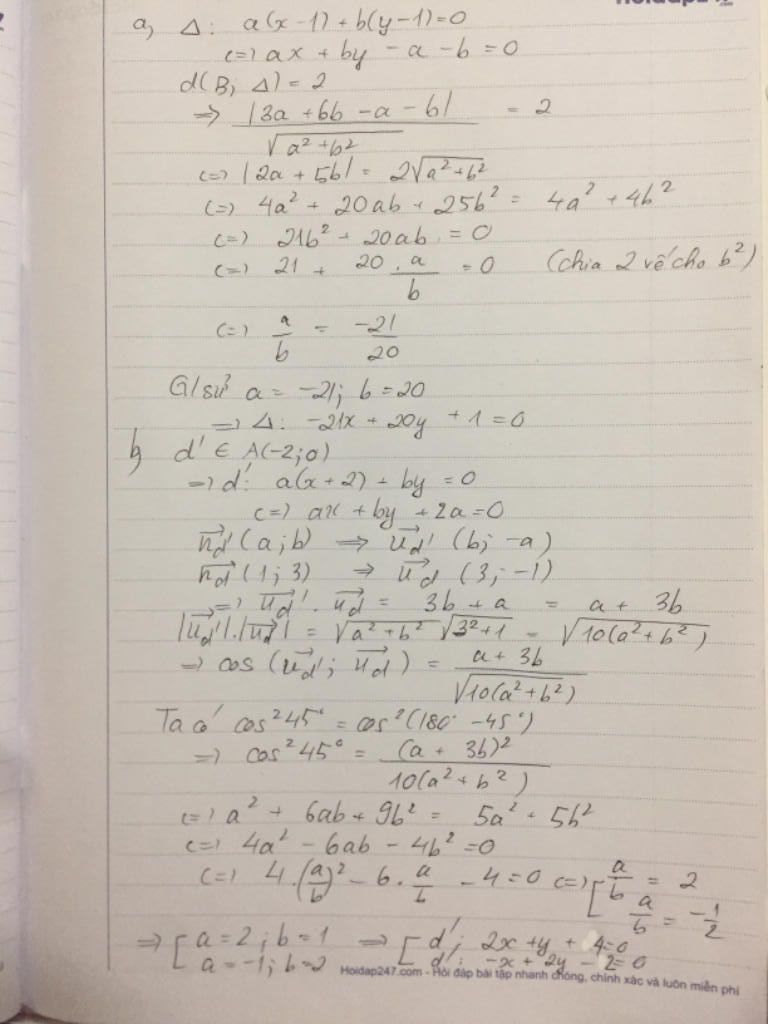 Hoidap247
a, Δ: a(x-1)+b(y-1)=0
<=> ax + by - a - b = 0
d(B; Δ) = 2
=> |3a + 6b - a - b| / √(a² + b²) = 2
<=> |2a + 5b| = 2√(a² + b²)
<=> 4a² + 20ab + 25b² = 4a² + 4b²
<=> 21b² + 20ab = 0
<=> 21 + 20 . a/b = 0 (chia 2 vế cho b²)
<=> a/b = -21/20
G/sử a = -21; b = 20
=> Δ: -21x + 20y + 1 = 0
b, d' ∈ A(-2; 0)
=> d': a(x + 2) + by = 0
<=> ax + by + 2a = 0
n⃗d' (a; b) => u⃗d' (b; -a)
n⃗d (1; 3) => u⃗d (3; -1)
=> u⃗d' . u⃗d = 3b + a = a + 3b
|u⃗d'|.|u⃗d| = √(a² + b²) √(3² + 1) = √(10(a² + b²))
=> cos (u⃗d'; u⃗d) = (a + 3b) / √(10(a² + b²))
Ta có cos²45° = cos²(180° - 45°)
=> cos²45° = (a + 3b)² / 10(a² + b²)
<=> a² + 6ab + 9b² = 5a² + 5b²
<=> 4a² - 6ab - 4b² = 0
<=> 4.(a/b)² - 6. a/b - 4 = 0 <=> [ a/b = 2
a/b = -1/2
=> [ a = 2; b = 1 => [ d': 2x + y + 4 = 0
a = -1; b = 2 d': -x + 2y - 2 = 0
Hoidap247.com - Hỏi đáp bài tập nhanh chóng, chính xác và luôn miễn phí